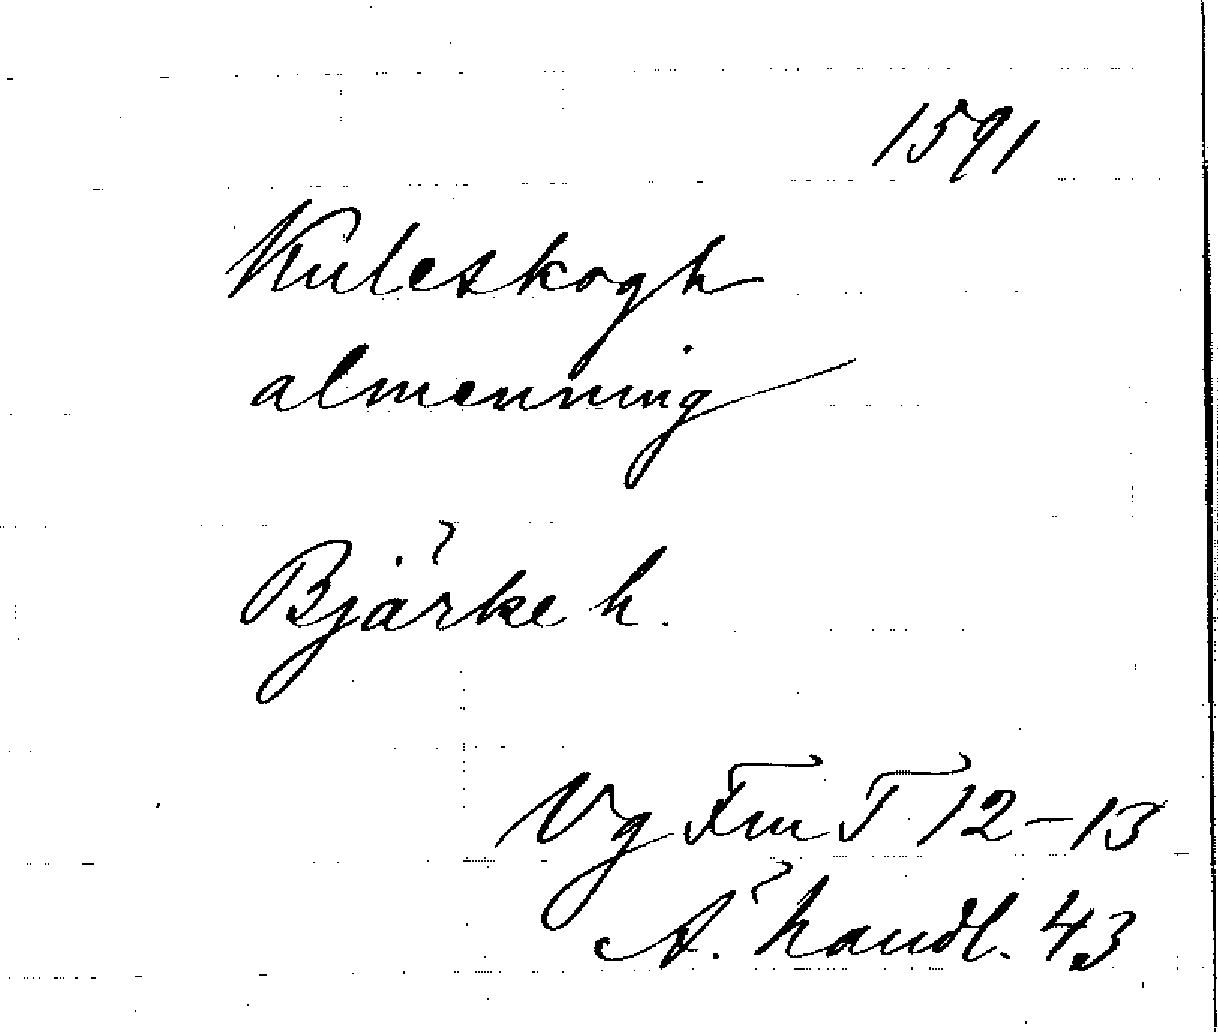 1591
Kuleskogh
almenning
Bjärke h.
Vg Fm T 12-13
A. handl. 43